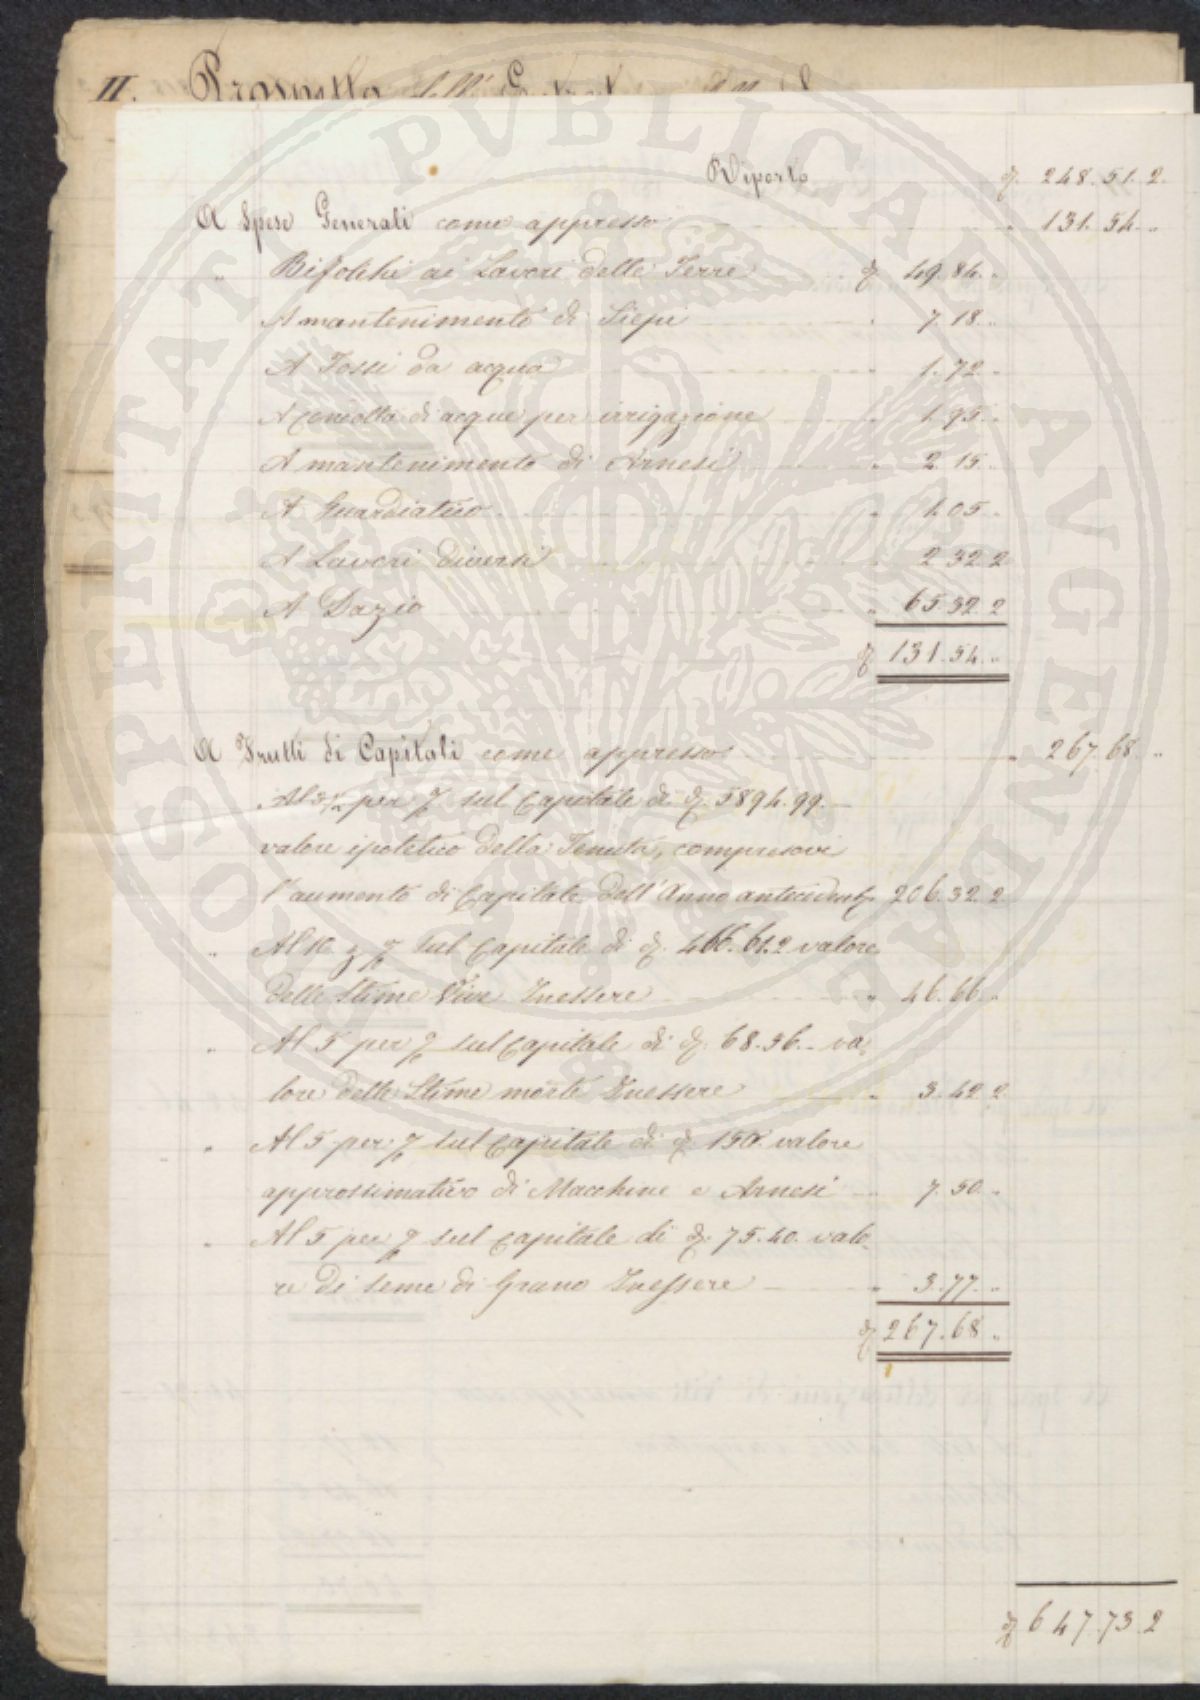 II. Prospetto dell'
Riporto ₰. 248. 51. 2.
A Spese Generali come appresso " 131. 54. "
" Bifolchi ai Lavori delle Terre ₰. 49. 84. "
A mantenimento di Siepi " 7. 18. "
A Fossi da acqua " 1. 72. "
A Condotta di acque per irrigazione " 1. 95. "
A mantenimento di Arnesi " 2. 15. "
A Guardiatico " 1. 05. "
A Lavori diversi " 2. 32. 2
A Dazio " 65. 32. 2
₰ 131. 54. "
A Frutti di Capitali come appresso " 267. 68. "
Al per % sul Capitale di ₰. 5894. 99. "
valore ipotetico della Tenuta, compresovi
l'aumento di Capitale dell'Anno antecedente 206. 32. 2
" Al 10 % sul Capitale di ₰. 466. 61. 2 valore
delle Stime Vive Inessere " 46. 66. "
" Al 5 per % sul Capitale di ₰. 68. 36. " va,
lore delle Stime morte Inessere " 3. 42. 2
" Al 5 per % sul Capitale di ₰. 150. valore
approssimativo di Macchine e Arnesi 7. 50. "
" Al 5 per % sul Capitale di ₰. 75. 40. valo,
re di seme di Grano Inessere " 3. 77. "
₰ 267. 68. "
₰ 647. 73. 2
PROSPERITATI PUBLICAE AUGENDAE